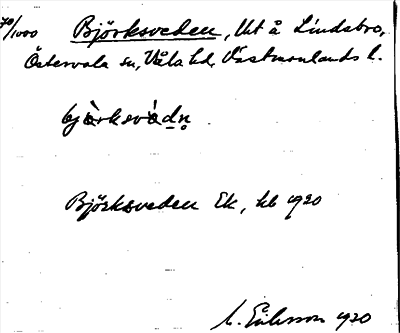 70/1000 Björksveden, Utt å Lindsbro,
Östervala sn, Våla hd, Västmanlands l.
bjö̀rksvèdn.
Björksveden Ek, kb 1920
Eriksson 1920